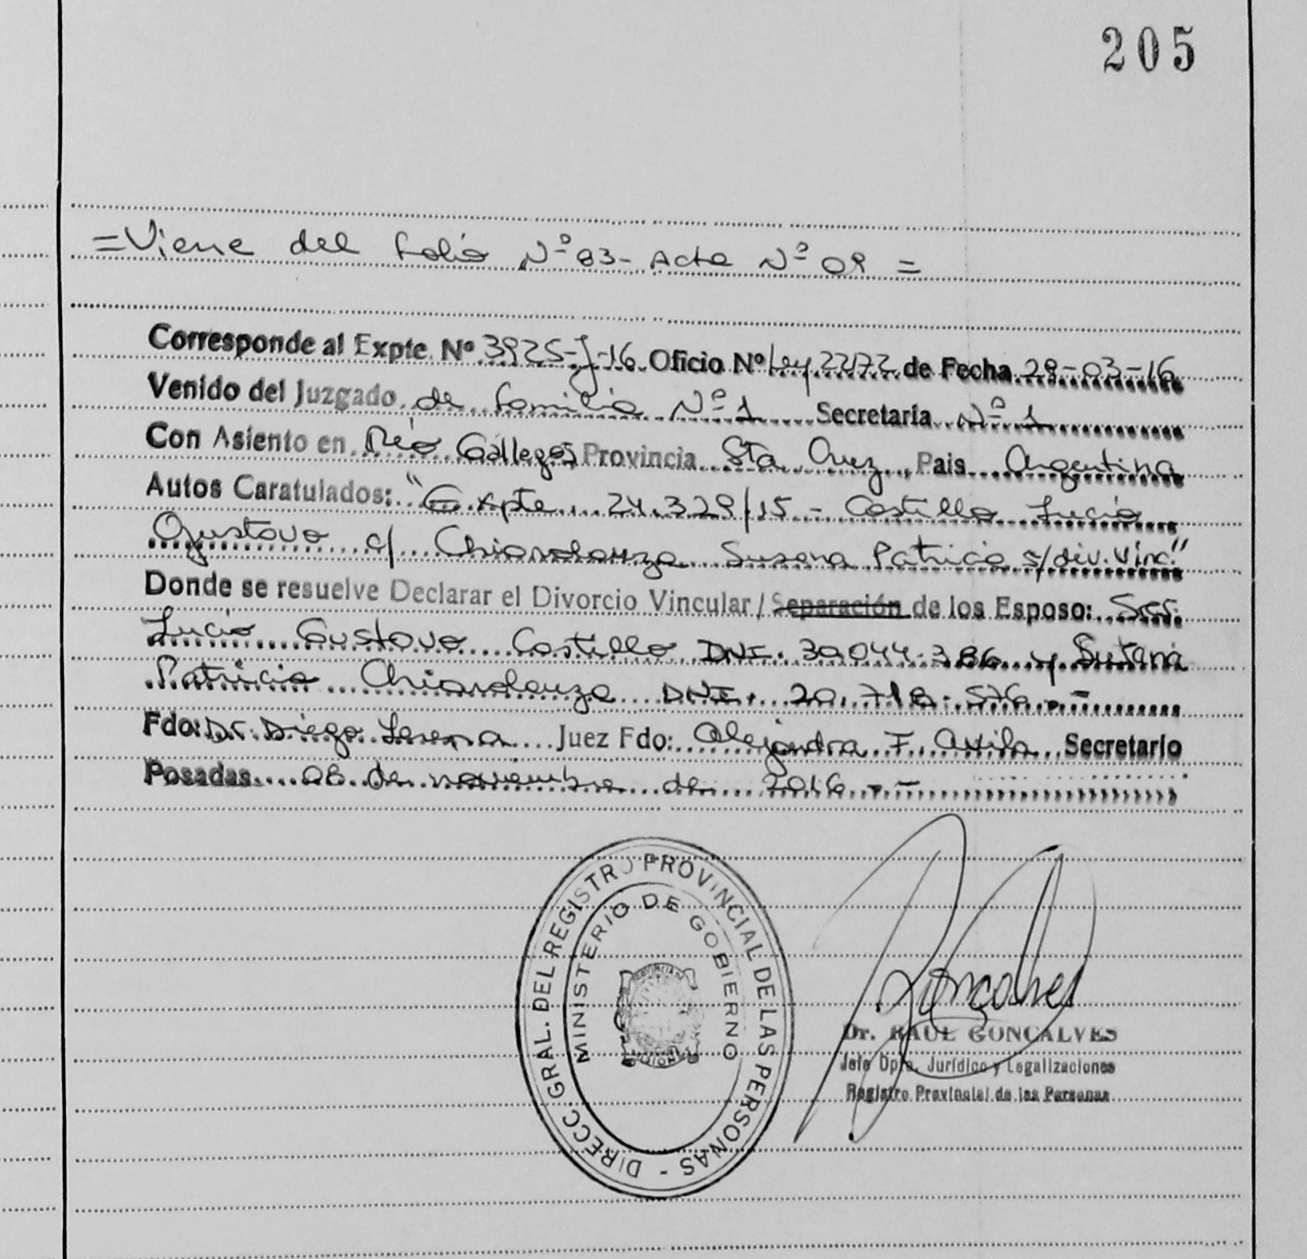 205
=Viene del folio Nº 83- Acta Nº 09 =
Corresponde al Expte. Nº 3925-J-16 Oficio Nº Ley 22172 de Fecha 29-03-16
Venido del Juzgado de Familia Nº 1 Secretaría Nº 1
Con Asiento en Río Gallegos Provincia Sta Cruz, Pais Argentina
Autos Caratulados: "Expte. 24.329/15 - Castillo Lucio
Gustavo c/ Chiaralanza Susana Patricia s/div. Vinc."
Donde se resuelve Declarar el Divorcio Vincular / Separación de los Esposo: Sres.
Lucio Gustavo Castillo DNI. 30.044.386 y Susana
Patricia Chiaralanza DNI. 20.718.576.-
Fdo: Dr. Diego Lerena Juez Fdo: Alejandra F. Secretario
Posadas 08 de noviembre de 2016.-
DIRECC. GRAL. DEL REGISTRO PROVINCIAL DE LAS PERSONAS -
MINISTERIO DE GOBIERNO
Goncalves
Dr. RAUL GONCALVES
Jefe Dpto. Jurídico y Legalizaciones
Registro Provincial de las Personas